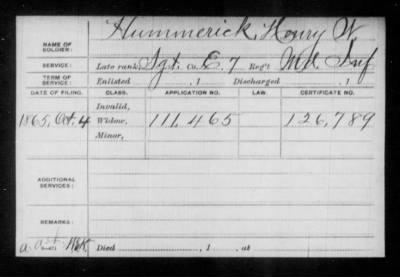 Hummerick, Henry W
NAME OF SOLDIER:
SERVICE: Late rank, Sgt. Co. E. 7 Reg't Md. Inf
TERM OF SERVICE: Enlisted , 1 Discharged , 1
DATE OF FILING. CLASS. APPLICATION NO. LAW. CERTIFICATE NO.
Invalid,
1865, Oct. 4 Widow, 111,465 126,789
Minor,
ADDITIONAL SERVICES:
REMARKS:
Died , 1 , at